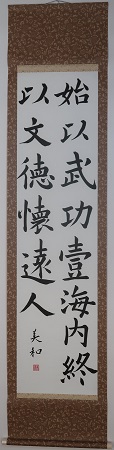 始以武功壹海内終
以文德懷遠人
美和